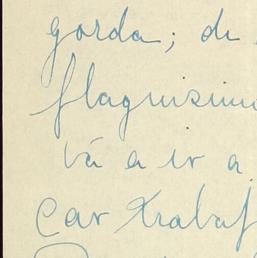 gorda; de
flaquisimo
vá a ir a
car trabaj